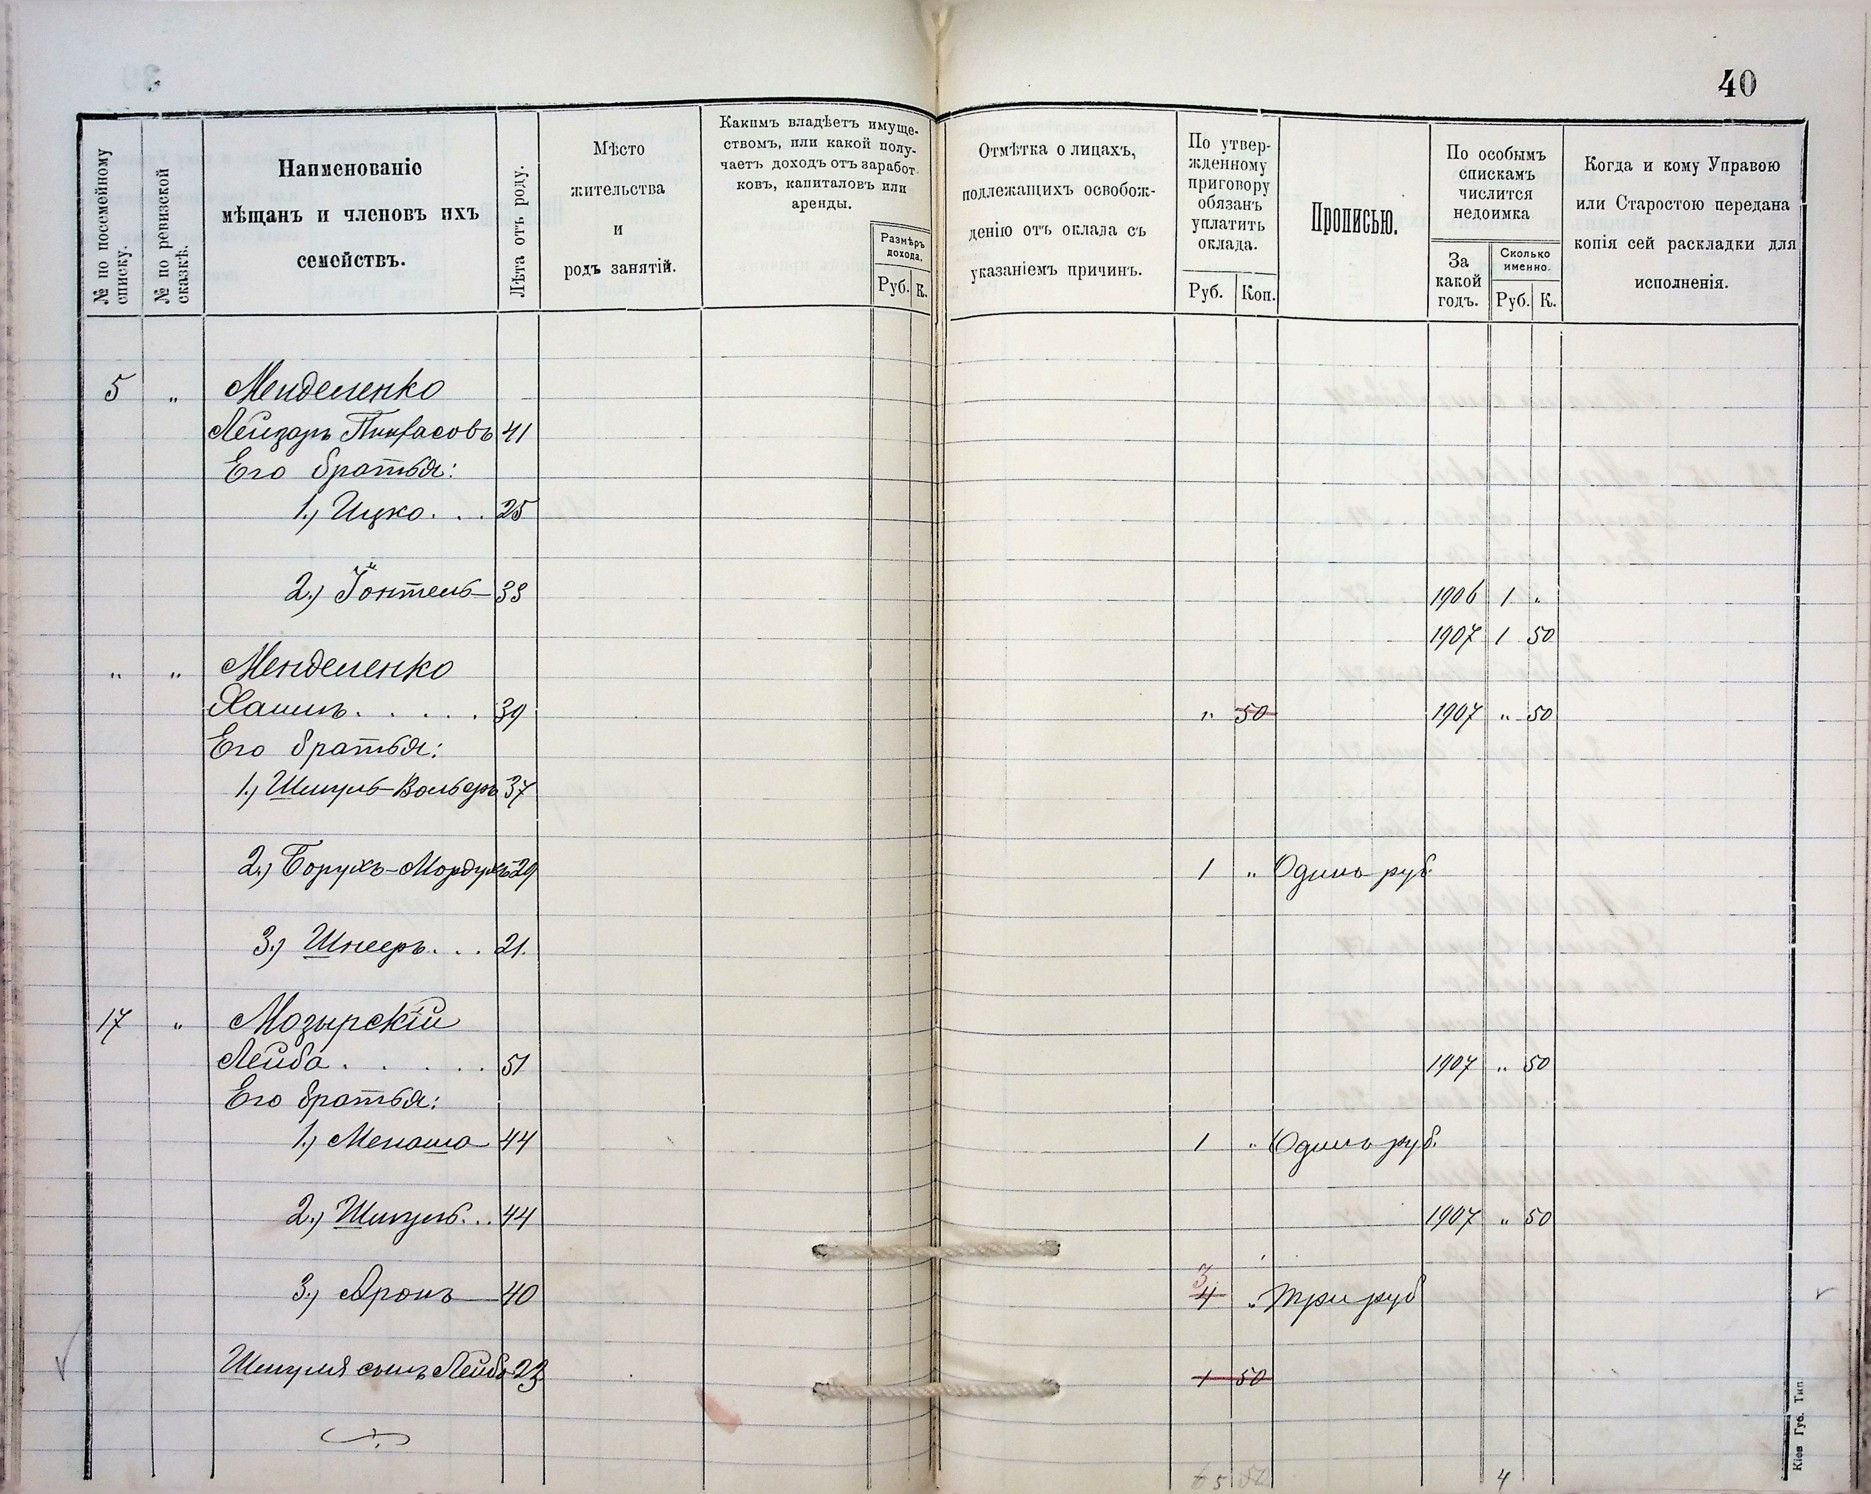 40
№ по посемейному списку.
№ по ревизской сказкѣ.
Наименованіе
мѣщанъ и членовъ ихъ
семействъ.
Лѣта отъ роду.
Мѣсто
жительства
и
родъ занятій.
Какимъ владѣетъ имуще-
ствомъ, или какой полу-
чаетъ доходъ отъ заработ-
ковъ, капиталовъ или
аренды.
Размѣръ
дохода.
Руб. К.
Отмѣтка о лицахъ,
подлежащихъ освобож-
денію отъ оклада съ
указаніемъ причинъ.
По утвер-
жденному
приговору
обязанъ
уплатить
оклада.
Руб. Коп.
Прописью.
По особымъ
спискамъ
числится
недоимка
За
какой
годъ.
Сколько
именно.
Руб. К.
Когда и кому Управою
или Старостою передана
копія сей раскладки для
исполненія.
5 „ Менделенко
Лейзаръ Пинхасовъ 41
Его братья:
1.) Ицко. . . 25
2.) Іонтель 33 1906 1 „
1907 1 50
„ „ Менделенко
Хаимъ. . . . . 39 „ 50 1907 „ 50
Его братья:
1.) Шмуль-Вольфъ 37
2.) Борухъ-Мордухъ 29 1 „ Одинъ руб.
3.) Шнееръ. . . 21.
17 „ Мозырскій
Лейба. . . . . 51 1907 „ 50
Его братья:
1.) Менаша 44 1 „ Одинъ руб.
2.) Шмуль. . . 44 1907 „ 50
3
3.) Аронъ 40 4 „ Три руб
Шмуля сынъ Лейба 23 1 50
4
Кіев Губ. Тип.